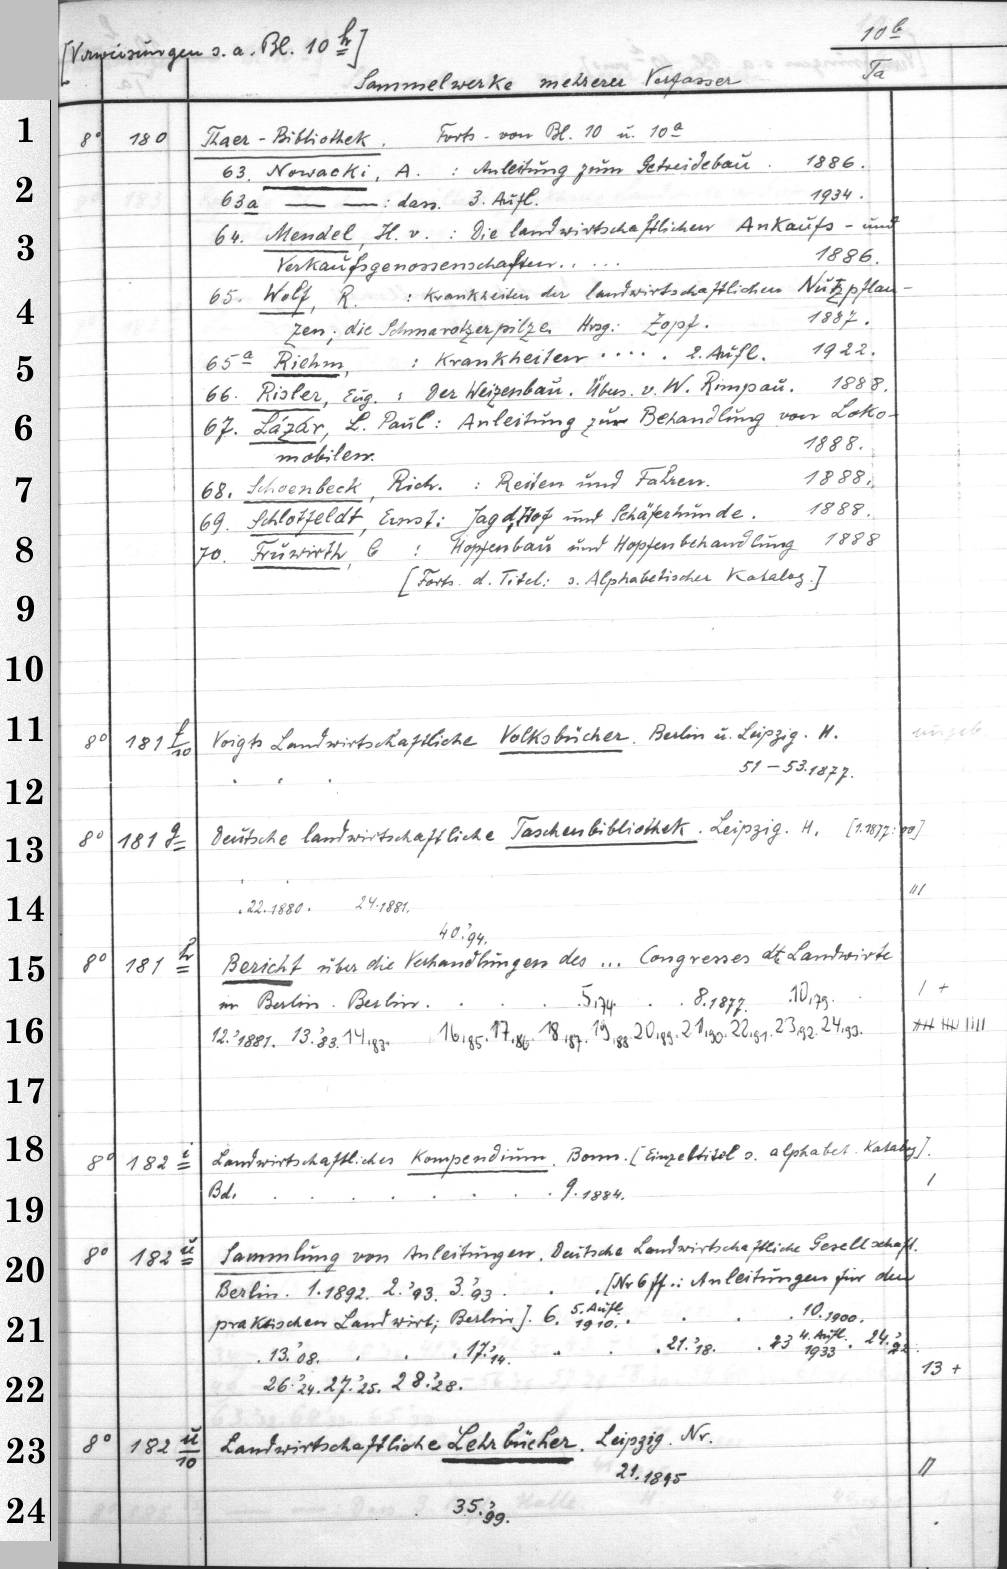 [Verweisungen s. a. Bl. 10 h]
10 b
Sammelwerke mehrerer Verfasser
Ta
1
8° 180 Thaer-Bibliothek. Forts. von Bl. 10 u. 10a
63. Nowacki, A. : Anleitung zum Getreidebau. 1886.
2
63a — — : dass. 3. Aufl. 1934.
64. Mendel, H. v. : Die landwirtschaftlichen Ankaufs- und
3
Verkaufsgenossenschaften. . . . 1886.
65. Wolf, R. : Krankheiten der landwirtschaftlichen Nutzpflan-
4
zen; die Schmarotzerpilze. Hrsg: Zopf. 1887.
65a Riehm, : Krankheiten . . . . . 2. Aufl. 1922.
5
66. Risler, Eug. : Der Weizenbau. Übers. v. W. Rimpau. 1888.
6
67. Lázár, L. Paul : Anleitung zur Behandlung von Loko-
mobilen. 1888.
7
68. Schoenbeck, Rich. : Reiten und Fahren. 1888.
69. Schlotfeldt, Ernst: Jagd, Hof und Schäferhunde. 1888.
8
70. Fruwirth, C : Hopfenbau und Hopfenbehandlung 1888
[Forts. d. Titel: s. Alphabetischer Katalog.]
9
10
11
8° 181 f/10 Voigts Landwirtschaftliche Volksbücher. Berlin u. Leipzig. H. ungeb
51-53.1877.
12
13
8° 181 g Deutsche landwirtschaftliche Taschenbibliothek. Leipzig. H. [1.1877: 90]
14
.22.1880. 24.1881. III
40.'94.
15
8° 181 h Bericht über die Verhandlungen des ... Congresses dt. Landwirte
in Berlin. Berlin. . . . 5,74. . . 8.1877. 10,79. I +
16
12.'1881. 13.'83. 14,83. 16,85. 17,86. 18,87. 19,88. 20,89. 21,90. 22,91. 23,92. 24,93.
17
18
8° 182 i Landwirtschaftliches Kompendium. Bonn. [Einzeltitel s. alphabet. Katalog].
Bd. . . . . . . . . 9.1884. I
19
20
8° 182 u Sammlung von Anleitungen. Deutsche Landwirtschaftliche Gesellschaft.
Berlin. 1.1892. 2.'93. 3.'93 . . . [Nr 6 ff.: Anleitungen für den
21
praktischen Landwirt; Berlin]. 6. 5. Aufl. 1910. . . . . 10.1900.
.13.'08. . . .17.'14. . . .21.'18. . 23 4. Aufl. 1933 . 24.'22
22
26.'24. 27.'25. 28.'28. 13 +
23
8° 182 u/10 Landwirtschaftliche Lehrbücher. Leipzig. Nr.
21.1895 II
24
35.'99.